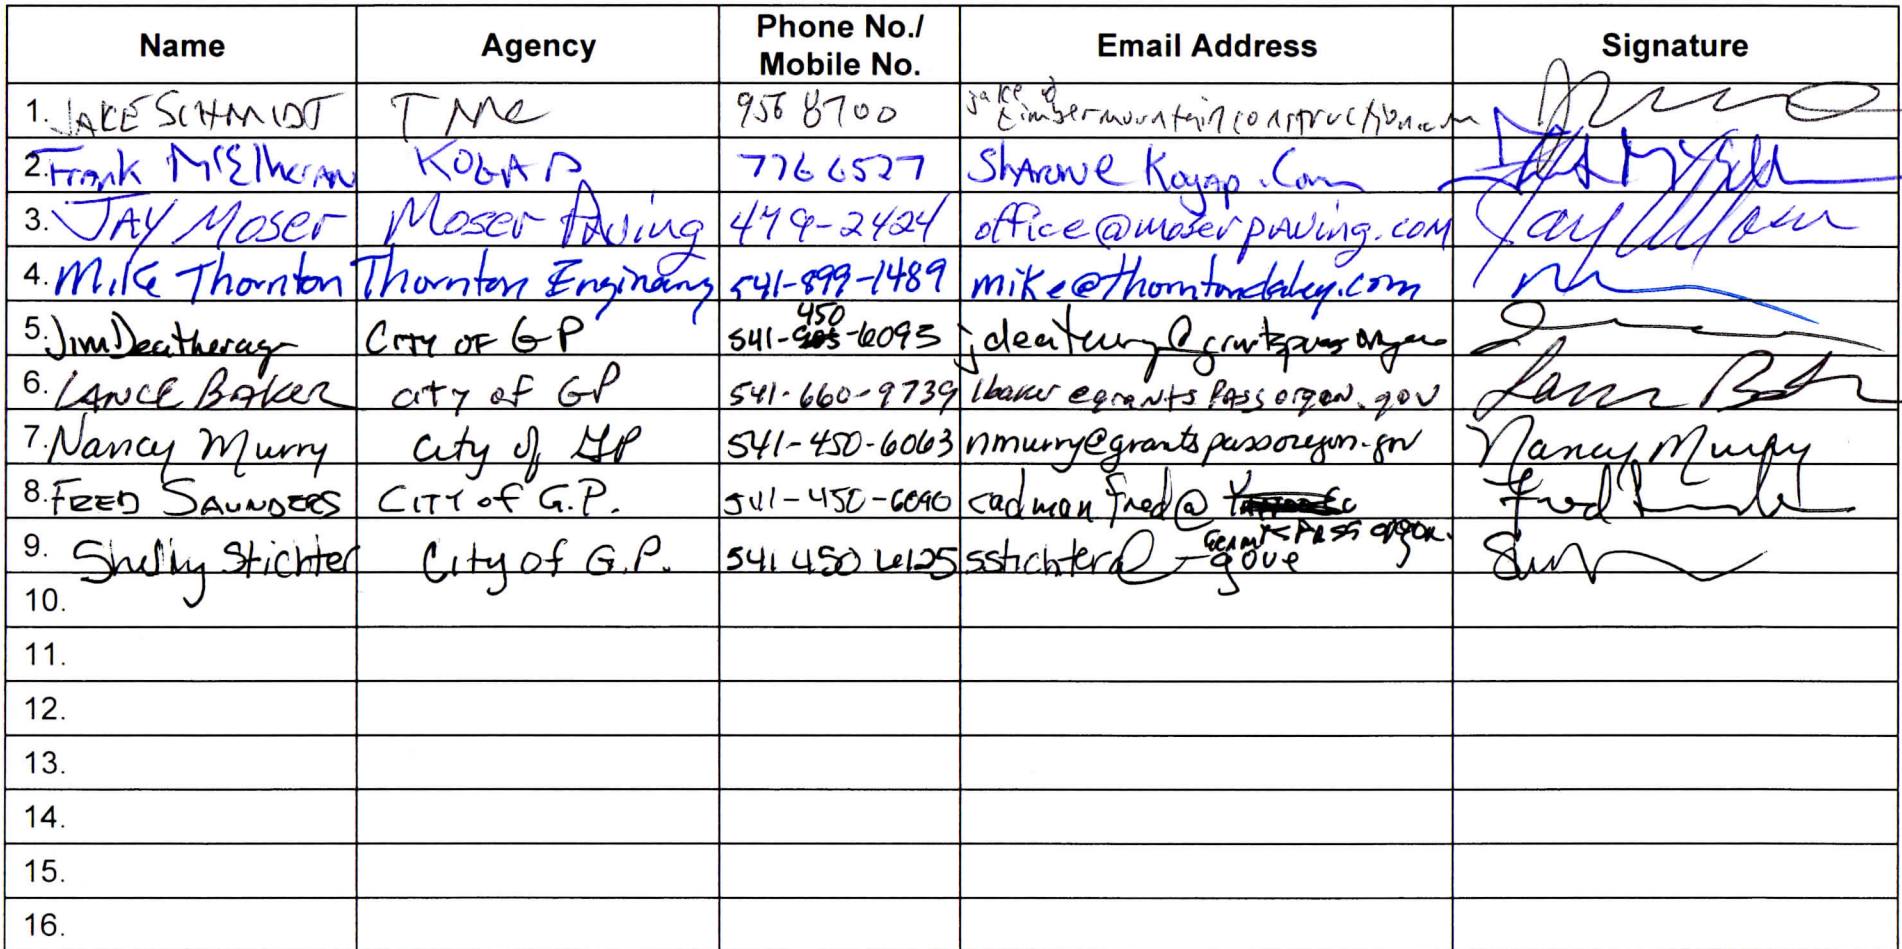 Name Agency Phone No./ Mobile No. Email Address Signature
1. JAKE SCHMIDT TMC 956 8700 jake@timbermountainconstruction.com
2. Frank McElheran KOGAP 776 6527 Sharon@Kogap.Com
3. JAY Moser Moser PAving 479-2424 office@moserpaving.com Jay Moser
4. Mike Thornton Thornton Enginering 541-899-1489 mike@thorntondaley.com
5. Jim Deatherage CITY OF GP 541-450-6095
6. LANCE BAKER CITY of GP 541-660-9739 lbaker@grantsPassoregon.gov
7. Nancy Murry City of GP 541-450-6063 nmurry@grantspassoregon.gov Nancy Murry
8. FRED SAUNDERS CITY of G.P. 541-450-6090 cadman fred@ Fred
GRANTSPASS oregon.
9. Shelly Stichter City of G.P. 541 450 6125 sstichter@ gove
10.
11.
12.
13.
14.
15.
16.